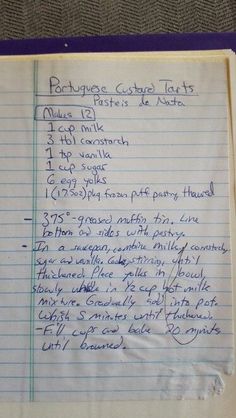 Portuguese Custard Tarts
Pasteis de Nata
Makes 12
1 cup milk
3 tbl cornstarch
1 tsp vanilla
1 cup sugar
6 egg yolks
1 (17.5oz) pkg frozen puff pastry, thawed
- 375°-greased muffin tin. Line
bottom and sides with pastry.
- In a saucepan, combine milk, cornstarch,
sugar and vanilla. Cook, stirring, until
thickened. Place yolks in bowl,
slowly whisk in 1/2 cup hot milk
mixture. Gradually add into pot.
Whisk 5 minutes until thickened.
-Fill cups and bake 20 minutes
until browned.